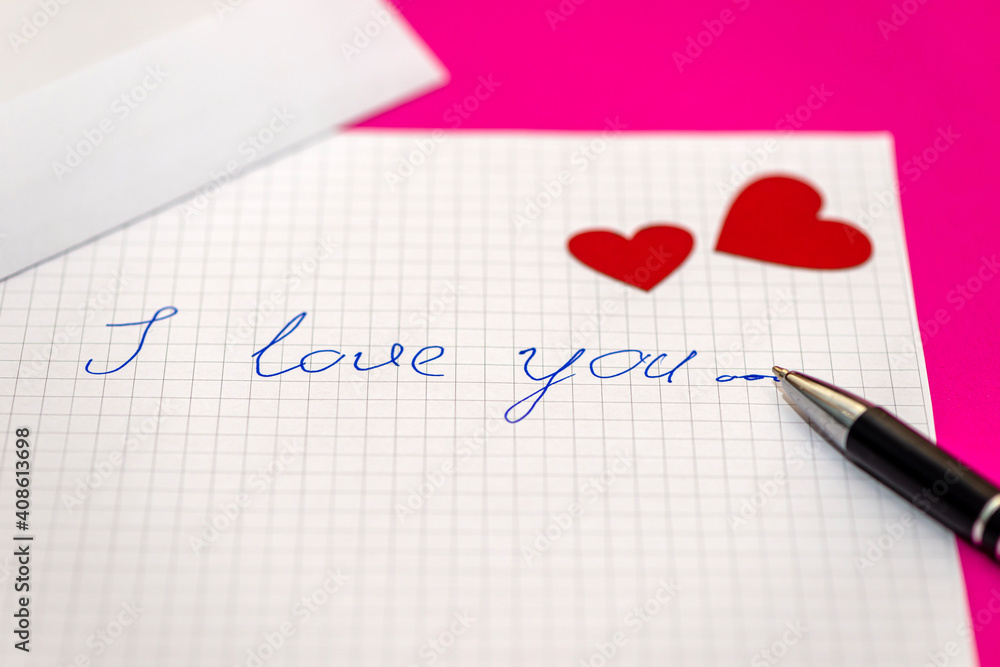 I love you...
Adobe Stock | #408613698